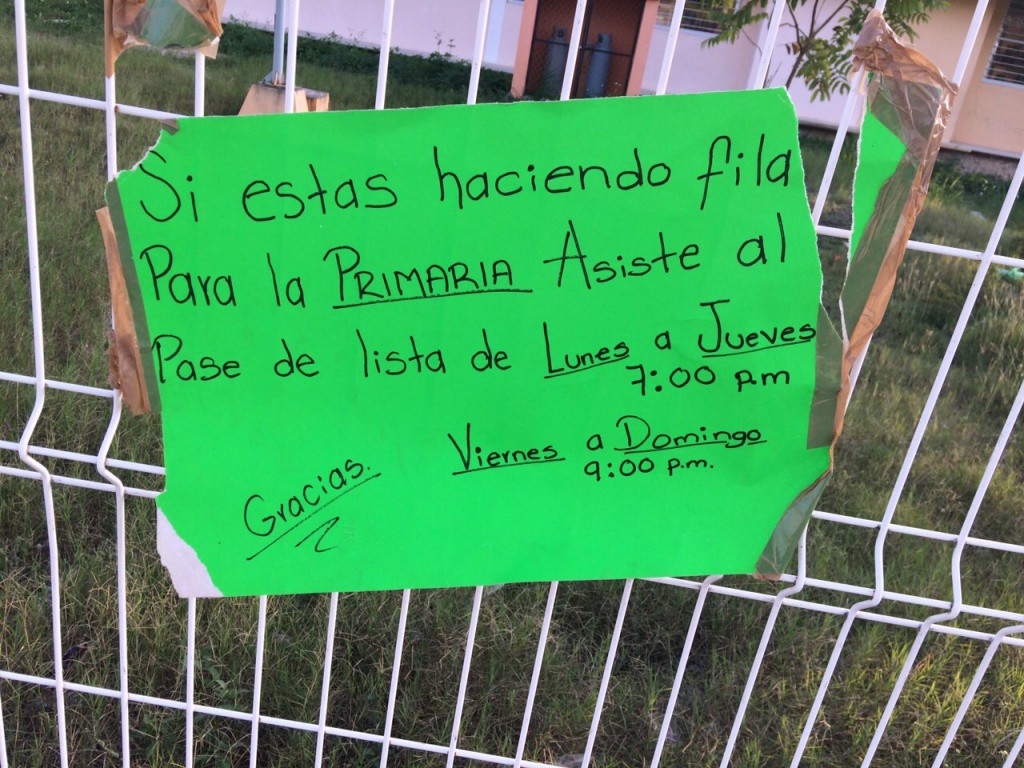 Si estas haciendo fila
Para la PRIMARIA Asiste al
Pase de lista de Lunes a Jueves
7:00 p.m
Viernes a Domingo
9:00 p.m.
Gracias.